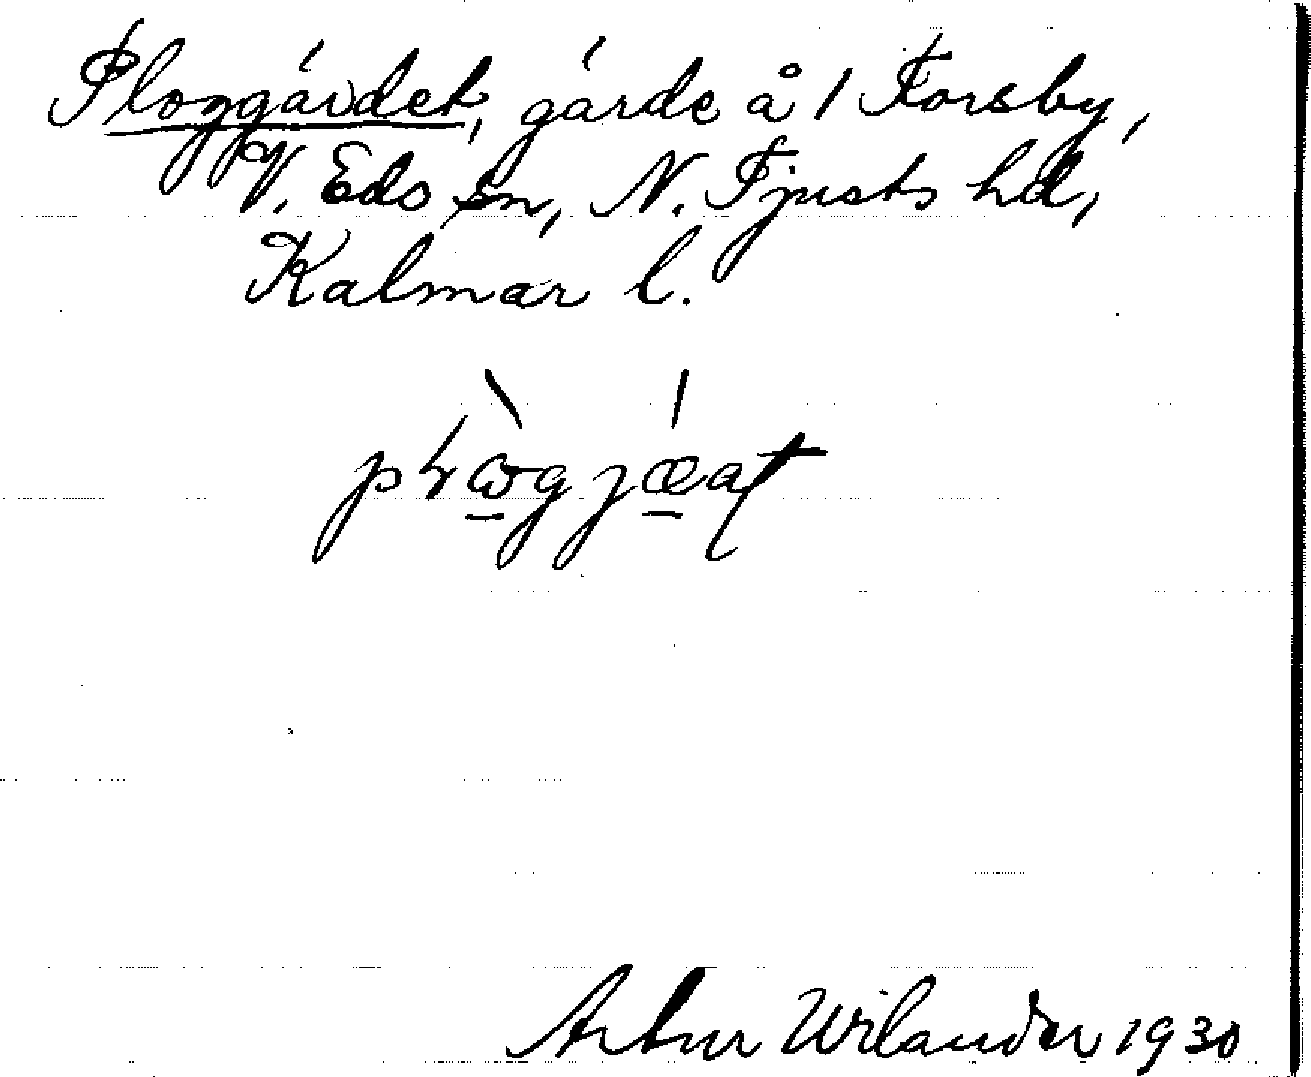 Ploggärdet, gärde å 1 Forsby,
V. Eds sn, N. Tjusts hd,
Kalmar l.
Artur Wilander 1930